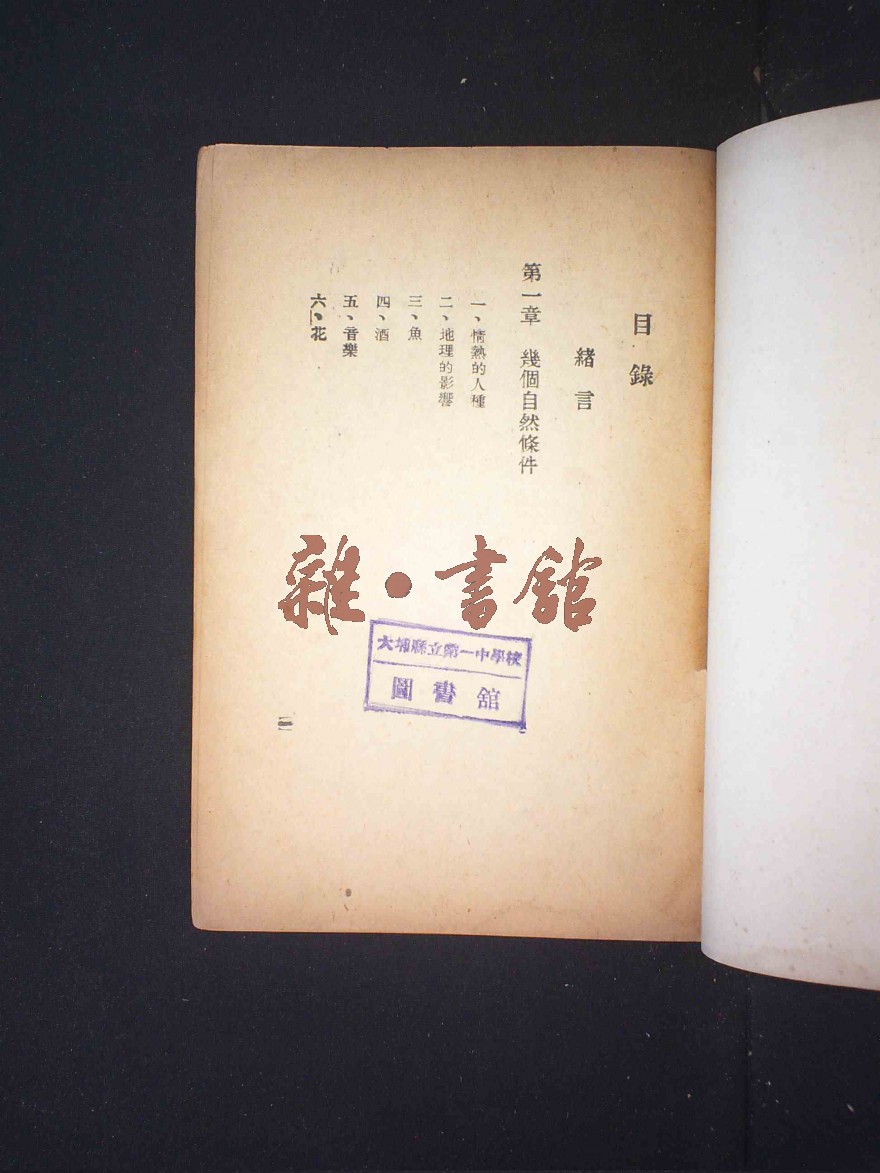 目錄
緒言
第一章 幾個自然條件
一、情熱的人種
二、地理的影響
三、魚
四、酒
五、音樂
六、花
雜·書館
大埔縣立第一中學校
圖書館